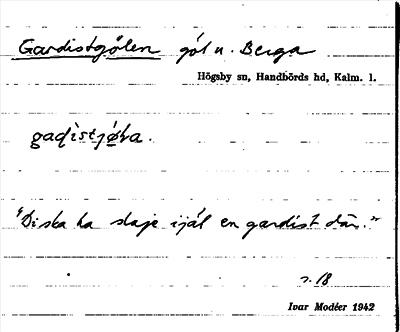 Gardistgölen göl n. Berga
Högsby sn, Handbörds hd, Kalm. l.
"Di ska ha slaje ijäl en gardist där."
s. 18
Ivar Modéer 1942